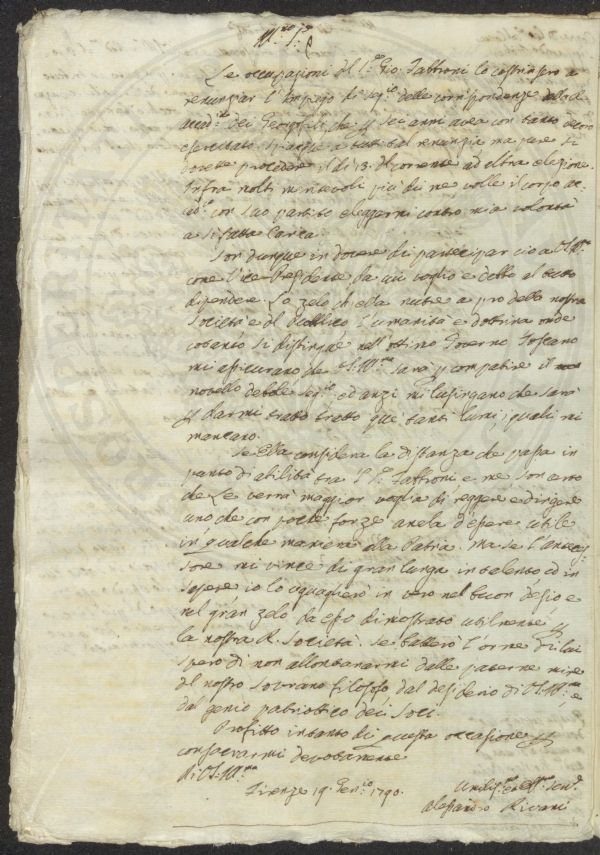 Le occupazioni del S.re Gio. Fabbroni lo costrinsero a
renunziar l'Impiego di Seg.rio delle corrispondenze della R.
Accad.ia dei Georgofili che p. sei anni avea con tanto decoro
esercitato. Spiacque a tutti tal renunzia ma pure si
dovette procedere il dì 13. del corrente ad altra elezione.
Infra molti meritevoli più di me volle il corpo ac-
cad.co con suo partito eleggermi contro mia volontà
a sì fatta Carica
Son dunque in dovere di partecipar ciò a VS. Ill.ma
come Vice-Presidente da cui voglio e debbo al tutto
dipendere. Lo zelo ch'ella nutre a pro della nostra
Società e del Pubblico l'umanità e dottrina onde
cotanto si distingue nell'ottimo Governo Toscano
mi assicurano che VS. Ill.ma sarà p. compatire il
novello debole Seg.rio ed anzi mi lusingano che sarà
p. darmi tratto tratto que' tanti lumi, i quali mi
mancano.
Se Ella considera la distanza che passa in
punto di abilità tra il S.r Fabbroni e me son certo
che Le verrà maggior voglia di reggere e dirigere
uno che con poche forze anela d'essere utile
in qualche maniera alla Patria. Ma se l'anteces-
sore mi vince di gran lunga in talento ed in
sapere io lo uguaglierò in vero nel buon desio e
nel gran zelo da esso dimostrato utilmente p.
la nostra R. Società. Se batterò l'orme di lui
spero di non allontanarmi dalle paterne mire
del nostro Sovrano filosofo, dal desiderio di VS. Ill.ma, e
dal genio patriottico dei Soci.
Profitto intanto di questa occasione p.
conservarmi devotamente
di VS. Ill.ma
Firenze 19. Gen.io 1790.
Umiliss.mo ed Obb.mo Serv.
Alessandro Rivani